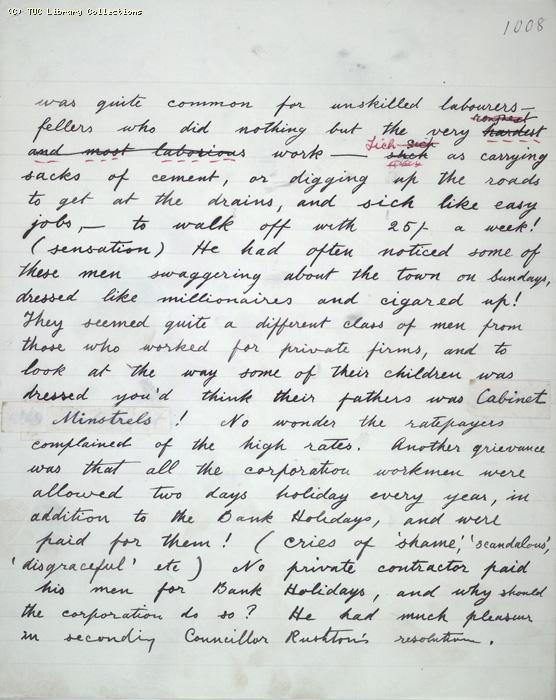 (C) TUC Library Collections
1008
was quite common for unskilled labourers—
fellers who did nothing but the very hardest roughest
and most laborious work — Sich as carrying
sacks of cement, or digging up the roads
to get at the drains, and sich like easy
jobs, — to walk off with 25/- a week!
(sensation) He had often noticed some of
these men swaggering about the town on Sundays,
dressed like millionaires and cigared up!
They seemed quite a different class of men from
those who worked for private firms, and to
look at the way some of their children was
dressed you'd think their fathers was Cabinet
Minstrels! No wonder the ratepayers
complained of the high rates. Another grievance
was that all the corporation workmen were
allowed two days holiday every year, in
addition to the Bank Holidays, and were
paid for them! (cries of 'shame', 'scandalous',
'disgraceful' etc) No private contractor paid
his men for Bank Holidays, and why should
the corporation do so? He had much pleasure
in seconding Councillor Rushton's resolution.